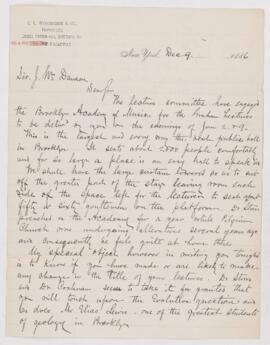 New York Dec 9 1886
Sir J. Wm Dawson
Dear Sir
The lecture committee have engaged
the Brooklyn Academy of Music for the Graham lectures
to be delivered by you on the evenings of Jan 2 & 9.
This is the largest and every way the best public hall
in Brooklyn. It seats about 2500 people comfortably
and for so large a place is an easy hall to speak in.
We shall have the large curtain lowered so as to cut
off the greater part of the stage leaving room each
side of the space left for the lecturer to seat about
fifty or sixty gentlemen on the platform. Dr Storrs
preached in the Academy for a year while Pilgrim
Church was undergoing alterations several years ago
and consequently he feels quite at home there.
My special object however in writing you tonight
is to know if you have made or are likely to make
any change in the title of your lectures. Dr Storrs
and Dr Cochran seem to take it for granted that
you will touch upon the Evolution question and
so does Mr Elias Lewis, one of the greatest students
of geology in Brooklyn